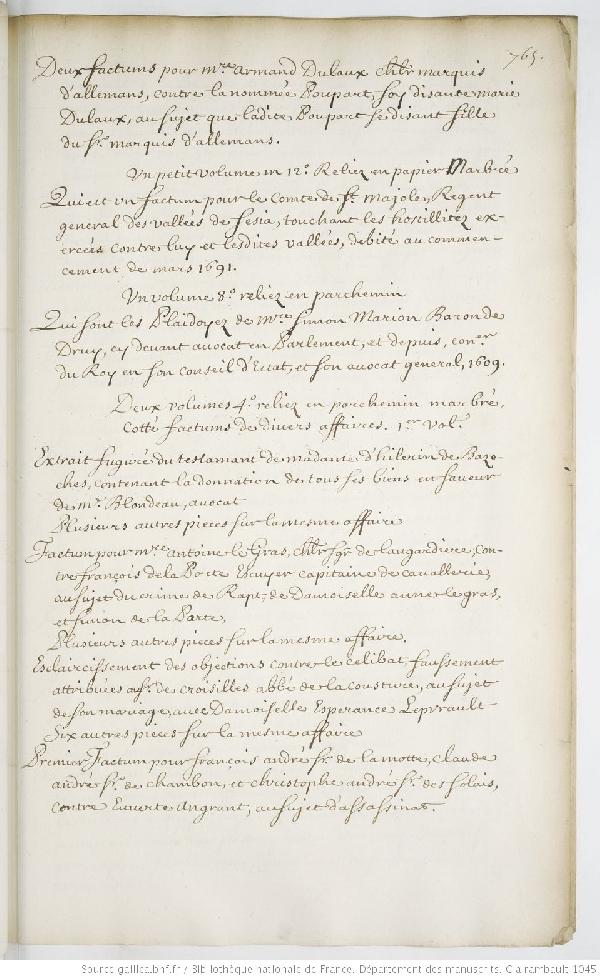 765.
Deux factums pour mre Armand Dulaux chlr marquis
d'allemans, contre la nommée Poupart, soy disante marie
Dulaux, au sujet que ladite Poupart se disant fille
du sr. marquis d'allemans.
Un petit volume in 12o Reliez en papier Marbré
Qui est un factum pour le Comte de St. Majole, Regent
general des vallées de Sesia, touchant les hostillitez ex-
ercées contre luy et lesdites vallées, debité au commen-
cement de mars 1691.
Un volume 8o reliez en parchemin
Qui sont les Plaidoyez de mre Simon Marion Baron de
Druy, cy devant avocat en Parlement, et depuis, coner
du Roy en son Conseil d'Estat, et son avocat general, 1609.
Deux volumes 4o reliez en parchemin marbré,
cotté factums de divers affaires. 1er Vole
Extrait figuré du testamant de madame d'hilerin de Bazo-
ches, contenant la donnation de tous ses biens en faveur
de mr Blondeau, avocat
Plusieurs autres pieces sur la mesme affaire
Factum pour mre Antoine le Gras, chlr sgr. de laugardiere, con-
tre françois de la Porte Escuyer capitaine de cavallerie,
au sujet du crime de Rapt, de Damoiselle anne le gras,
et de la Parte,
Plusieurs autres pieces sur la mesme affaire.
Esclaircissement des objections contre le celibat faussement
attribuées au sr. de croisilles abbé de la cousture, au sujet
de son mariage, avec Damoiselle Esperance
Six autres pieces sur la mesme affaire
Premier Factum pour françois andré sr. de la motte, claude
andré sr. de chambon, et christophe andré sr. des
contre Euverte Angrant, au sujet d'assassinat.
Source gallica.bnf.fr / Bibliothèque nationale de France. Département des manuscrits. Clairambault 1045